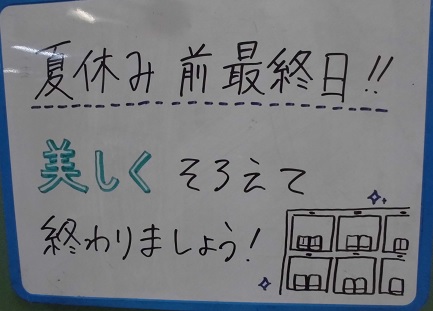 夏休み前最終日!!
美しくそろえて
終わりましょう!